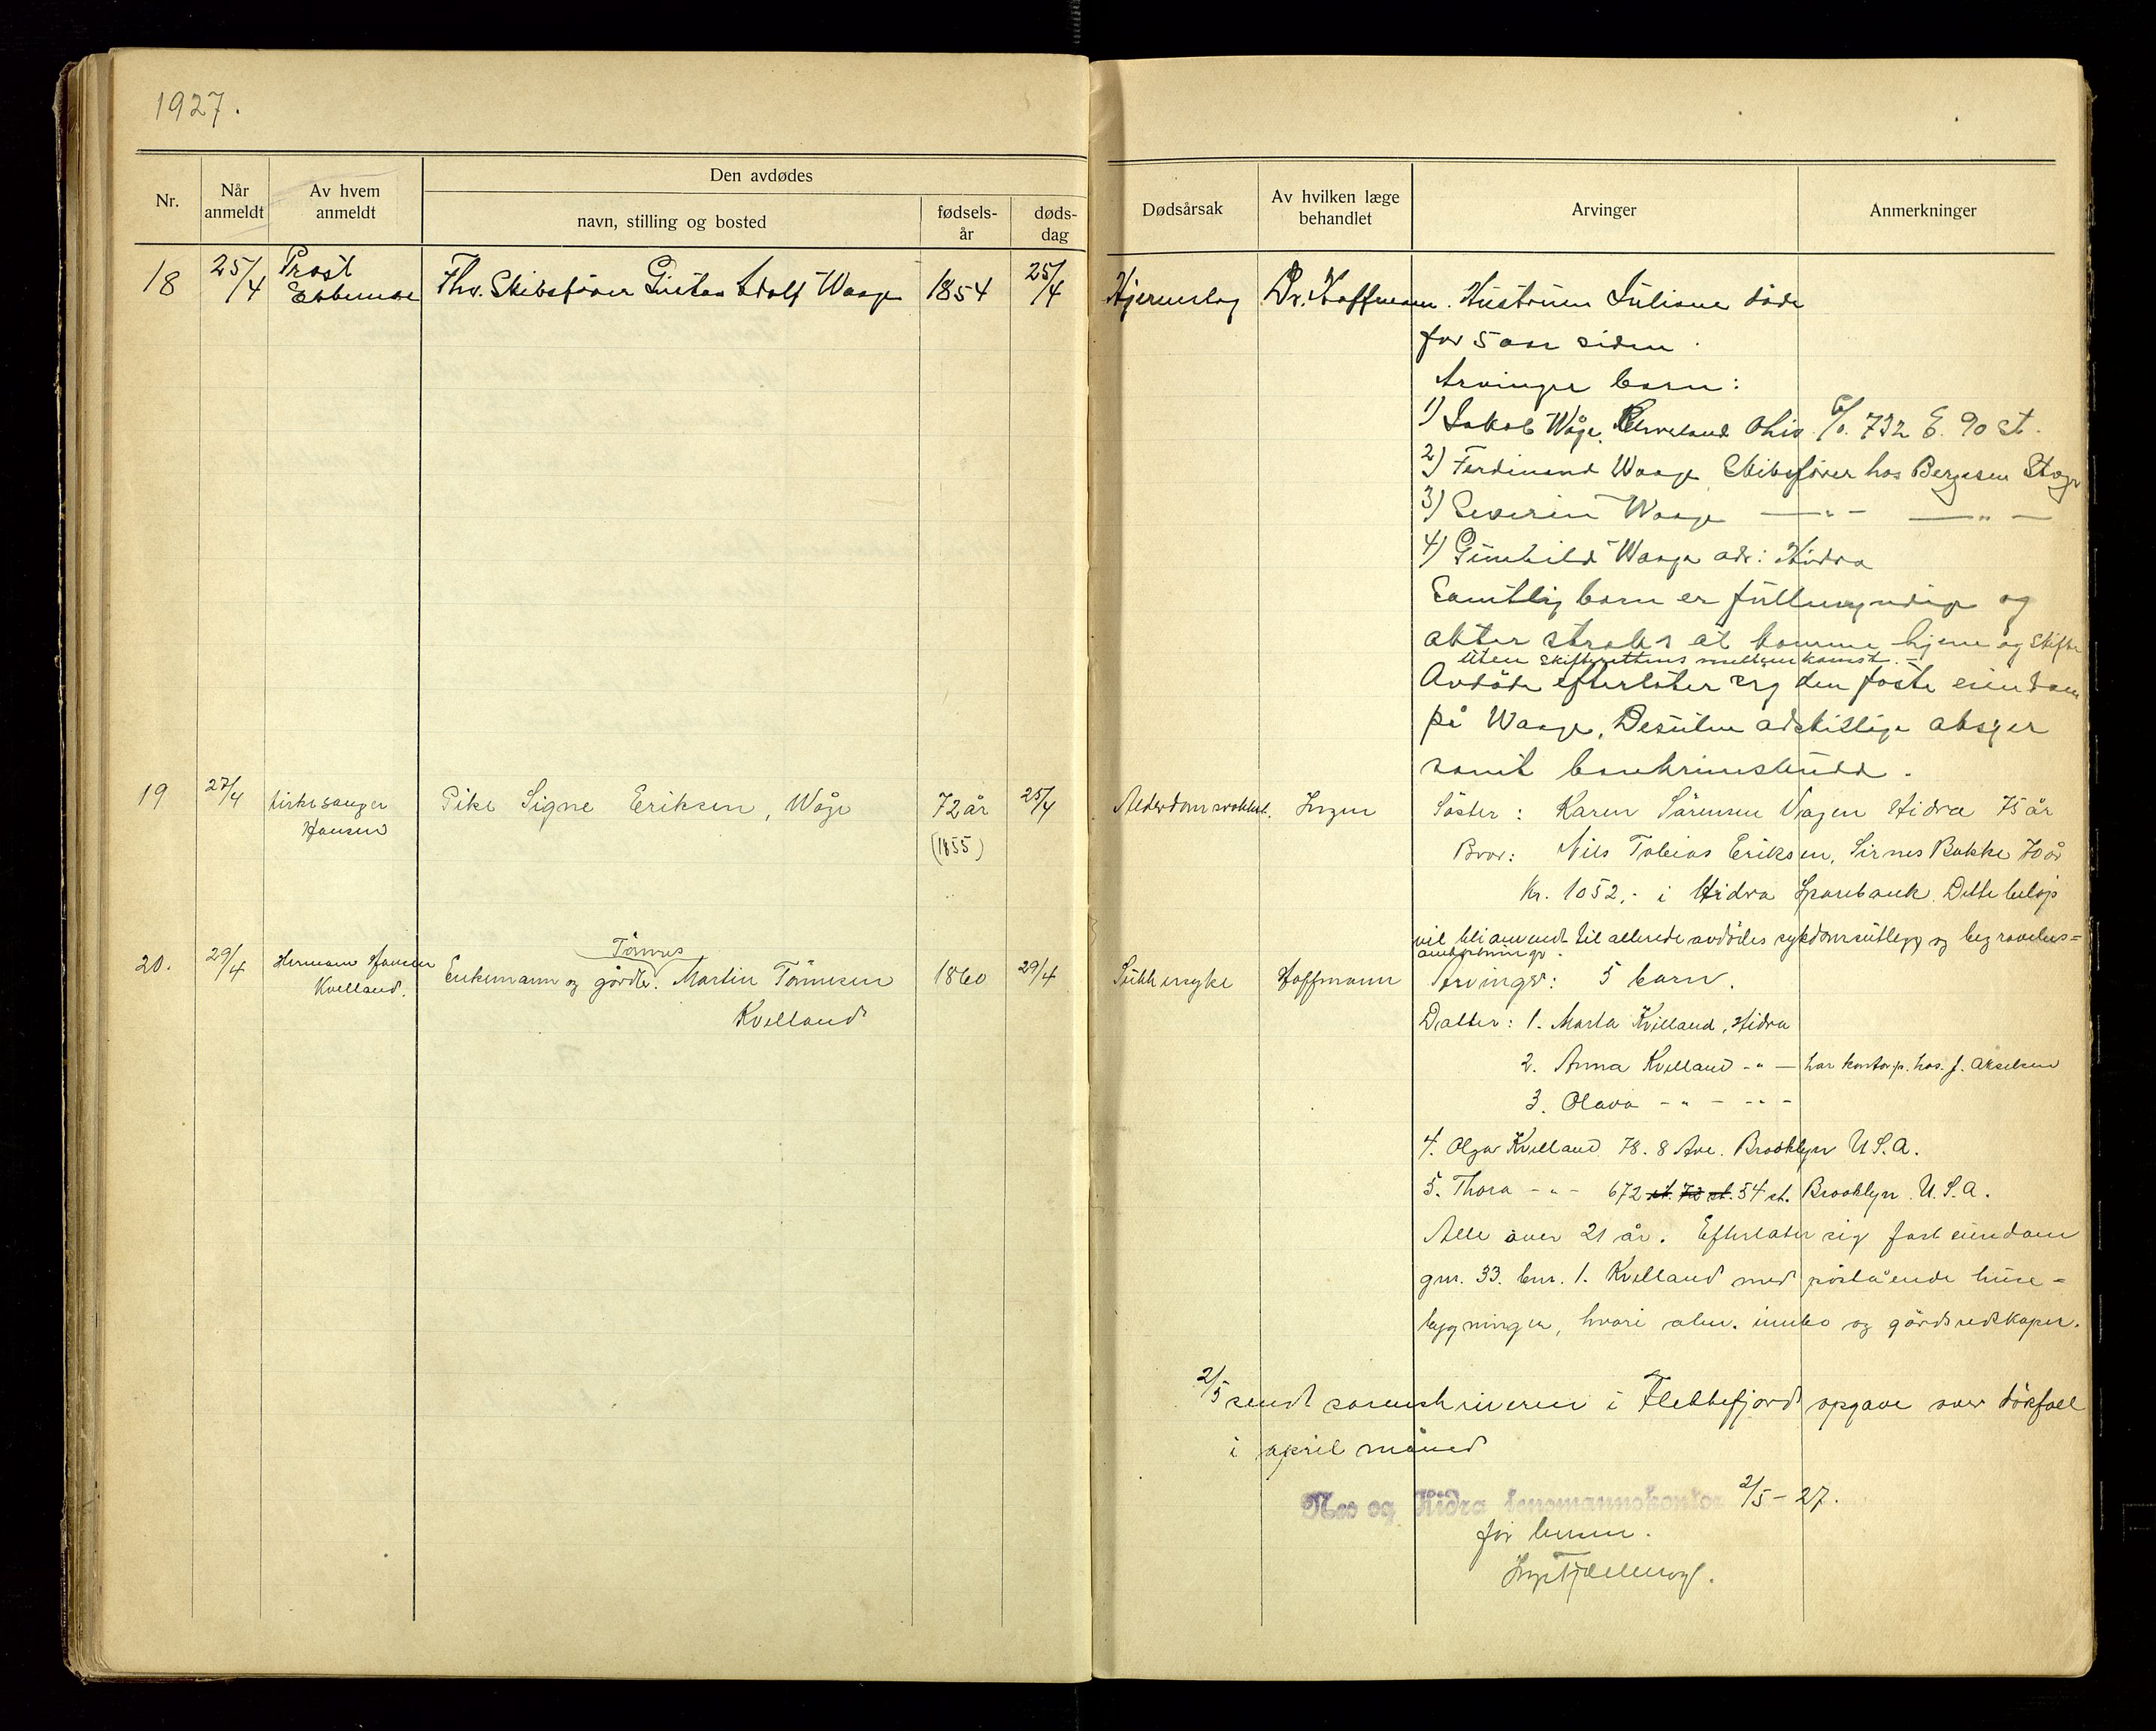 1927.
Nr.
Når anmeldt
Av hvem anmeldt
Den avdødes
navn, stilling og bosted
fødsels-år
døds-dag
Dødsårsak
Av hvilken læge behandlet
Arvinger
Anmerkninger
18
25/4
Prost
Fhv. Skibsfører Gustav Adolf Waage
1854
25/4
Hjerneslag
Dr. Hoffmann.
Hustruen Juliane døde
for 5 aar siden.
Arvinger barn:
1) Jakob Wåge, Cleveland Ohio. c/o. 732 E. 90 st.
2) Ferdinand Waage, Skibsfører hos Bergesen Stvgr
3) Severin Waage — " — — " —
4) Gunhild Waage adr: Hidra
Samtlig barn er fullmyndige og
akter straks at komme hjem og skifte
uten skifterettens mellemkomst.
Avdøde efterlater sig den faste eiendom
på Waage. Desuten adskillige aksjer
samt bankinnskudd.
19
27/4
Kirkesanger
Hansen
Pike Signe Eriksen, Våge
72 år
(1855)
25/4
Alderdomssvakhet.
Ingen
Søster: Karen Sørensen Vågen Hidra 75 år
Bror: Nils Tobias Eriksen, Sirnes Bakke 70 år
Kr. 1052,- i Hidra Sparebank. Dette beløp
vil bli anvendt til allerede avdødes sykdomsutlegg og begravelses=
omkostninger.
20.
29/4
Herman Hansen
Kvelland.
Tønnes
Enkemann og gårdbr. Martin Tønnesen
Kvelland
1860
29/4
Sukkersyke
Hoffmann
Arvinger: 5 barn.
Datter: 1. Marta Kvelland, Hidra
2. Anna Kvelland - " — har kontorp. hos. J. Akselsen
3. Olava - " - - " -
4. Olga Kvelland. 78. 8 Ave. Brooklyn U.S.A.
5. Thora - " - 672 st. 72 st. 54 st. Brooklyn. U.S.A.
Alle over 21 år. Efterlater sig fast eiendom
gnr. 33. bnr. 1. Kvelland med påstående huse=
bygninger, hvori alm. innbo og gårdsredskaper.
2/5 sendt sorenskriveren i Flekkefjord opgave over dødsfall
i april måned
Nes og Hidra lensmannskontor 2/5 - 27.
for lensm.